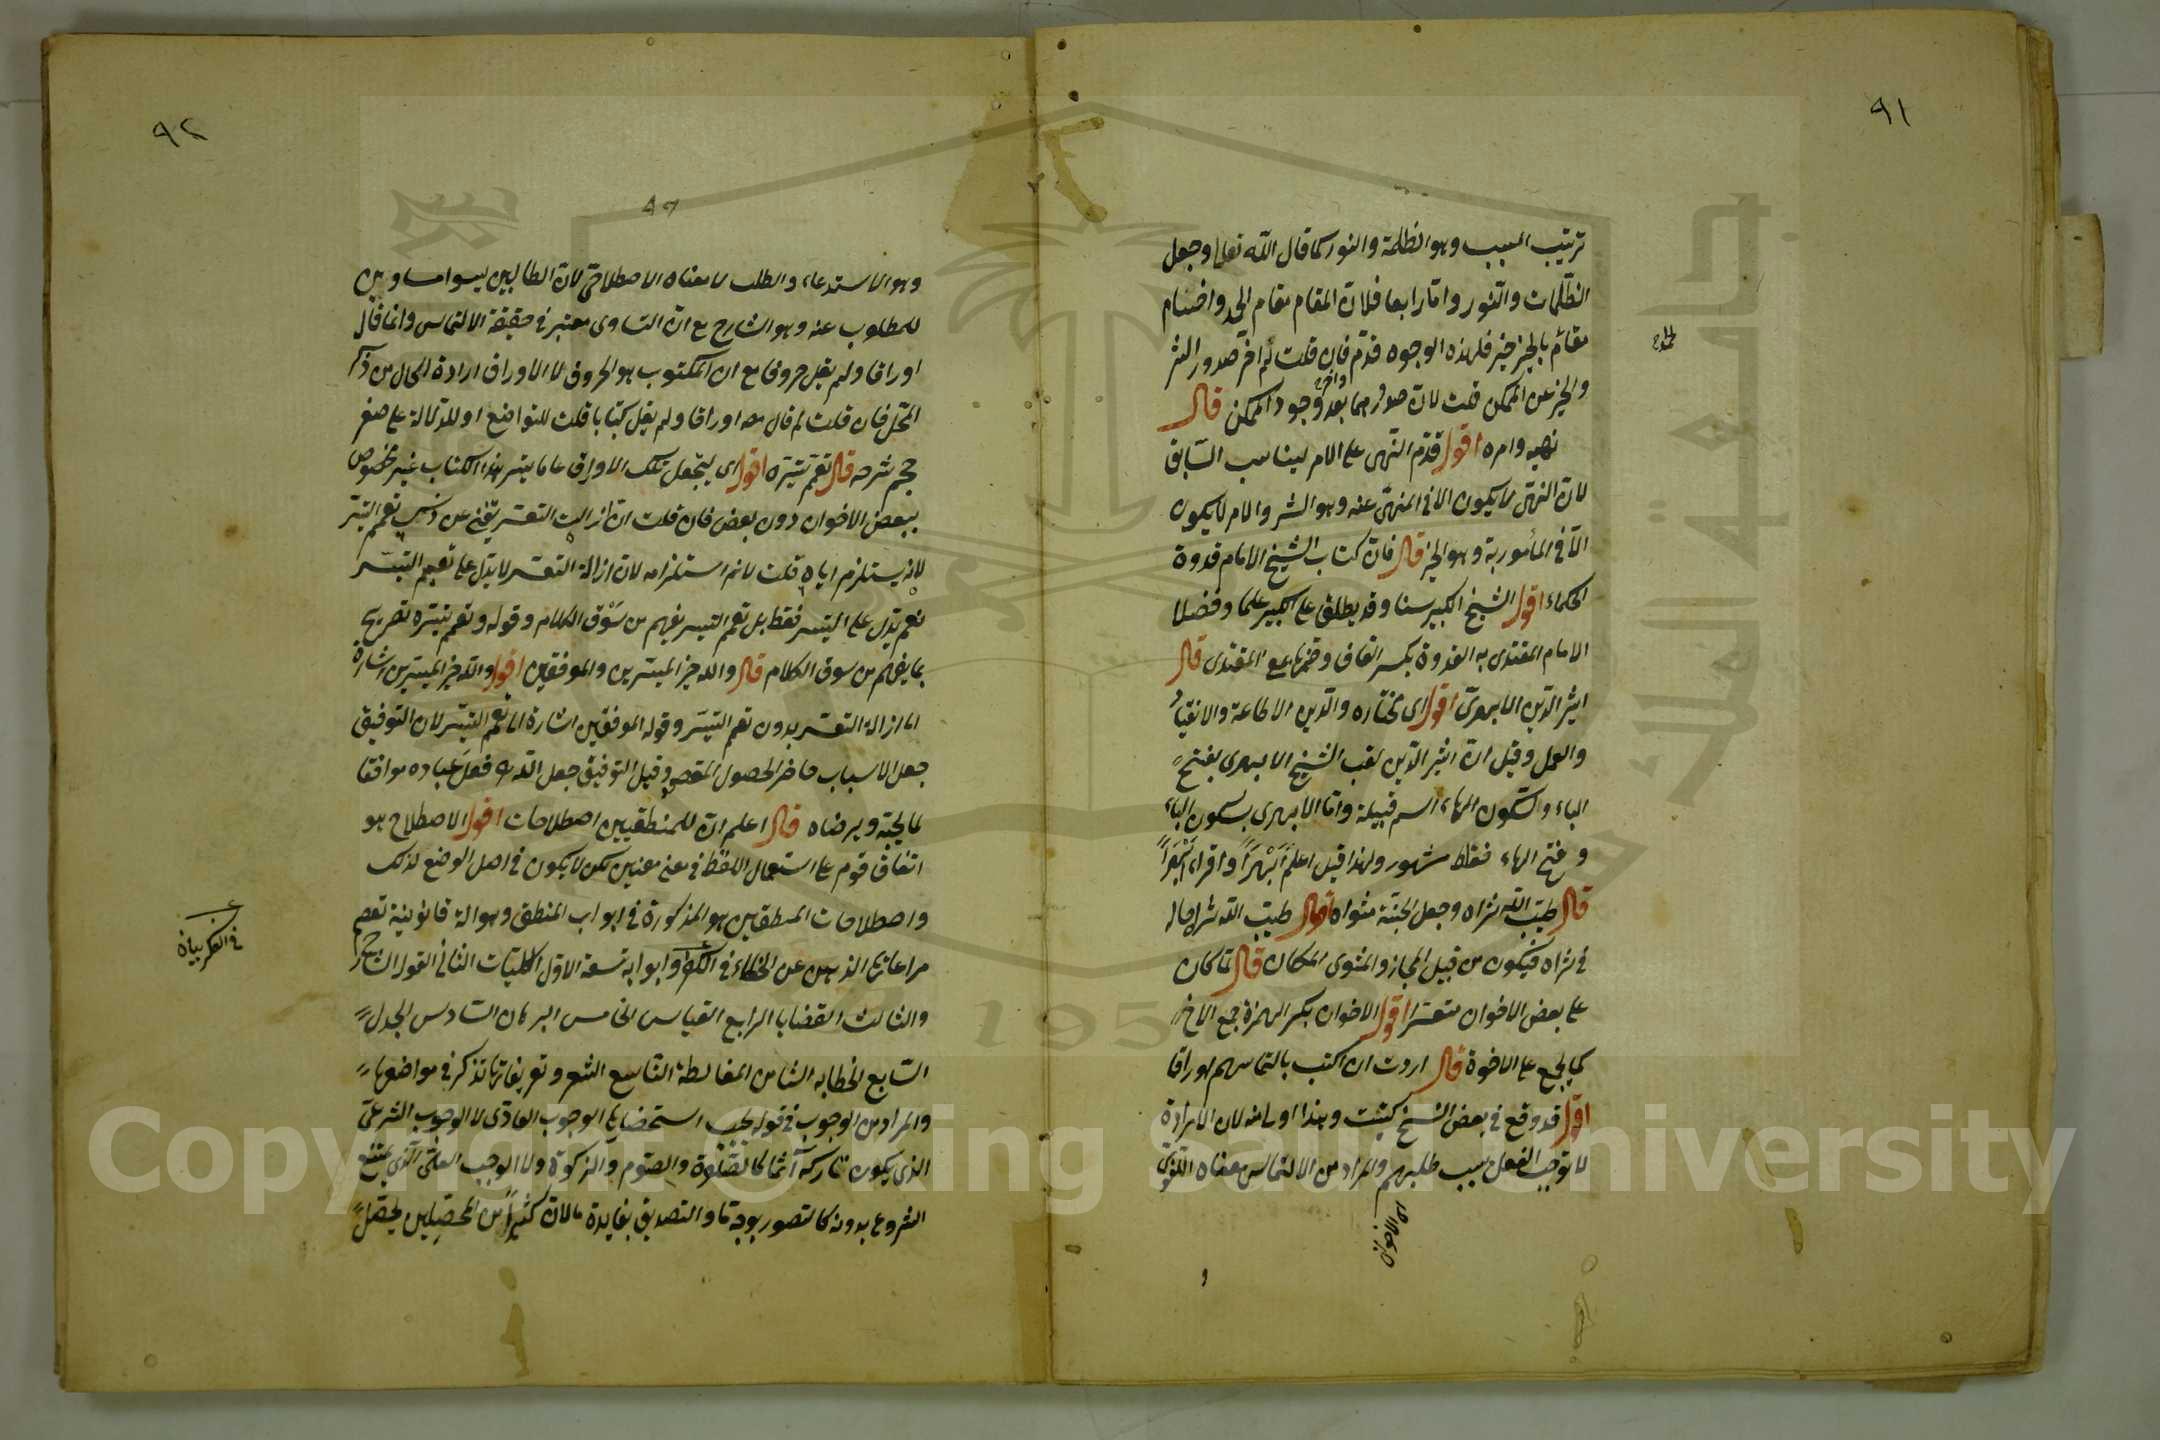 ٩١
ترتيب المسبب وهو الظلمة والنور كما قال الله تعالى وجعل
الظلمات والنور واما رابعا فلان المقام مقام الحمد واختتام
مقام بالخير خير فلهذه الوجوه قدم فان قلت لم اخر صدور الشر
والخير عن الممكن قلت لان صدورهما بعد وجود الممكن قال
نهيه وامره اقول قدم النهى على الامر ليناسب السابق
لان النهى لا يكون الا فى المنهى عنه وهو الشر والامر لا يكون
الا فى المأمور به وهو الخير قال فان كتاب الشيخ الامام قدوة
الحكماء اقول الشيخ الكبير سنا وقد يطلق على الكبير علما وفضلا
الامام المقتدى به القدوة بكسر القاف وضمها بمع المقتدى قال
اثير الدين الابهرى اقول اى مختاره والدين الاطاعة والانقياد
والعمل وقيل ان اثير الدين لقب الشيخ الابهرى بفتح
الباء والسكون الهاء اسم قبيلة واما الابهرى بسكون الباء
وفتح الهاء فغلط مشهور ولهذا قيل اعلم ابهرا واقراء ابهرا
قال طيب الله ثراه وجعل الجنة مثواه اقول طيب الله ثراه اى ماله
فى ثراه فيكون من قبيل المجاز والمثوى المكان قال لما كان
على بعض الاخوان متعسرا اقول الاخوان بكسر الهمزة جمع الاخ
كما يجمع على الاخوة قال اردت ان اكتب بالتماسهم اوراقا
اقول قد وقع فى بعض النسخ كتبت وهذا اولى منه لان الارادة
لا توجب الفعل بسبب طلبهم والمراد من الالتماس معناه اللغوى
٩٢
وهو الاستدعاء والطلب لا معناه الاصطلاحى لان الطالبين ليسوا مساوين
للمطلوب عنه وهو الشارح مع ان التساوى معتبر فى حقيقة الالتماس وانما قال
اوراقا ولم يقل حروفا مع ان المكتوب هو الحروف لا الاوراق ارادة الحال من ذكر
المحل فان قلت لم قال اوراقا ولم يقل كتابا قلت للتواضع او للدلالة على صغر
حجم شرحه قال تعم تيسره اقول اى ليجعل تلك الاوراق عاما تيسر هذا الكتاب غير مخصوص
ببعض الاخوان دون بعض فان قلت ان ازالت التعسر يغنى عن ذكر تعم التيسر
لانه يستلزم اياه قلت لا نم استلزامه لان ازالة التعسر لا يدل على تعميم التيسر
نعم يدل على التيسر فقط بل تعم التيسر يفهم من سوق الكلام وقوله وتعم تيسره تصريح
بما يفهم من سوق الكلام قال والله خير الميسرين والموفقين اقول والله خير الميسرين اشارة
الى ازالة التعسر بدون تعم التيسر وقوله الموفقين اشارة الى تعم التيسر لان التوفيق
جعل الاسباب حاضر الحصول المقصود وقيل التوفيق جعل الله فعل عباده موافقا
لما يحبه ويرضاه قال اعلم ان للمنطقيين اصطلاحات اقول الاصطلاح هو
اتفاق قوم على استعمال اللفظ فى معنى معين لا يكون فى اصل الوضع لذلك
واصطلاحات المنطقيين هو المذكورة فى ابواب المنطق وهو الة قانونية تعصم
مراعاتها الذهن عن الخطاء فى الفكر وابوابه تسعة الاول الكليات الثانى القول الشارح
والثالث القضايا الرابع القياس الخامس البرهان السادس الجدل
السابع الخطابه الثامن المغالطة التاسع الشعر وتعريفاتها تذكر فى مواضعها
والمراد من الوجوب فى قوله يجب استحضارها الوجوب العادى لا الوجوب الشرعى
الذى يكون تاركه آثما كالصلوة والصوم والزكوة ولا الوجوب العقلى الذى يمتنع
الشروع بدونه كالتصور بوجه ما والتصديق بفايدة ما لان كثيرا من المحصلين يحصل